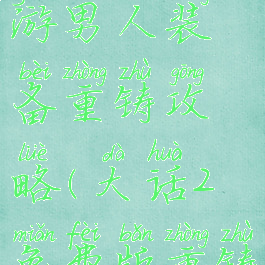 游男人装
bèi zhòng zhù gōng
备重铸攻
lüè dà huà
略(大话2
miǎn fèi bǎn zhòng zhù
免费版重铸